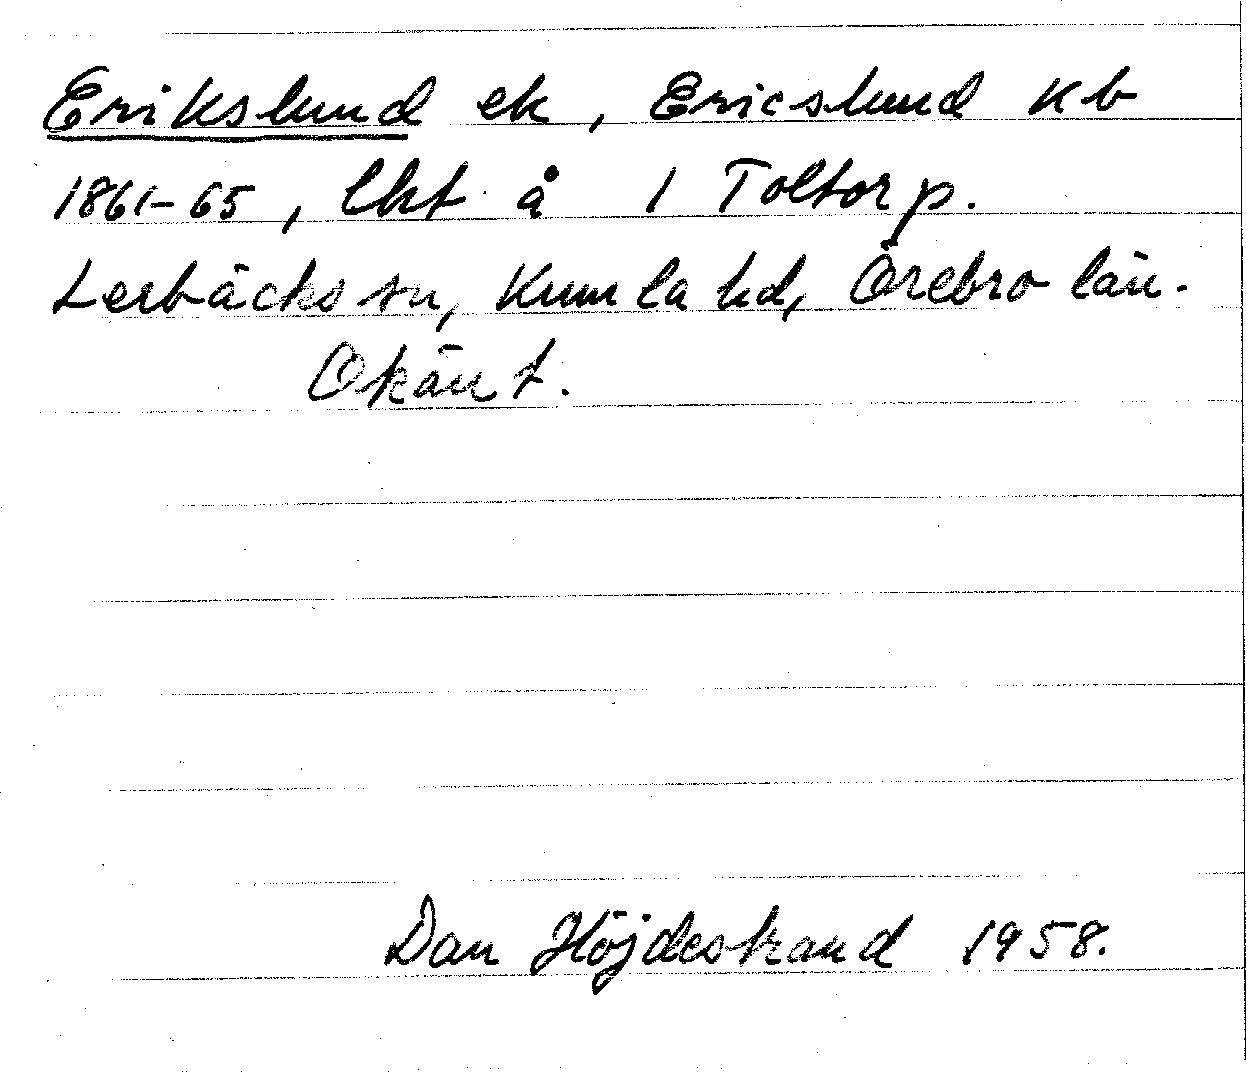 Erikslund ek, Ericslund Kb
1861-65, lht å 1 Toltorp.
Lerbäcks sn, Kumla hd, Örebro län.
Okänt.
Dan Höjdestrand 1958.